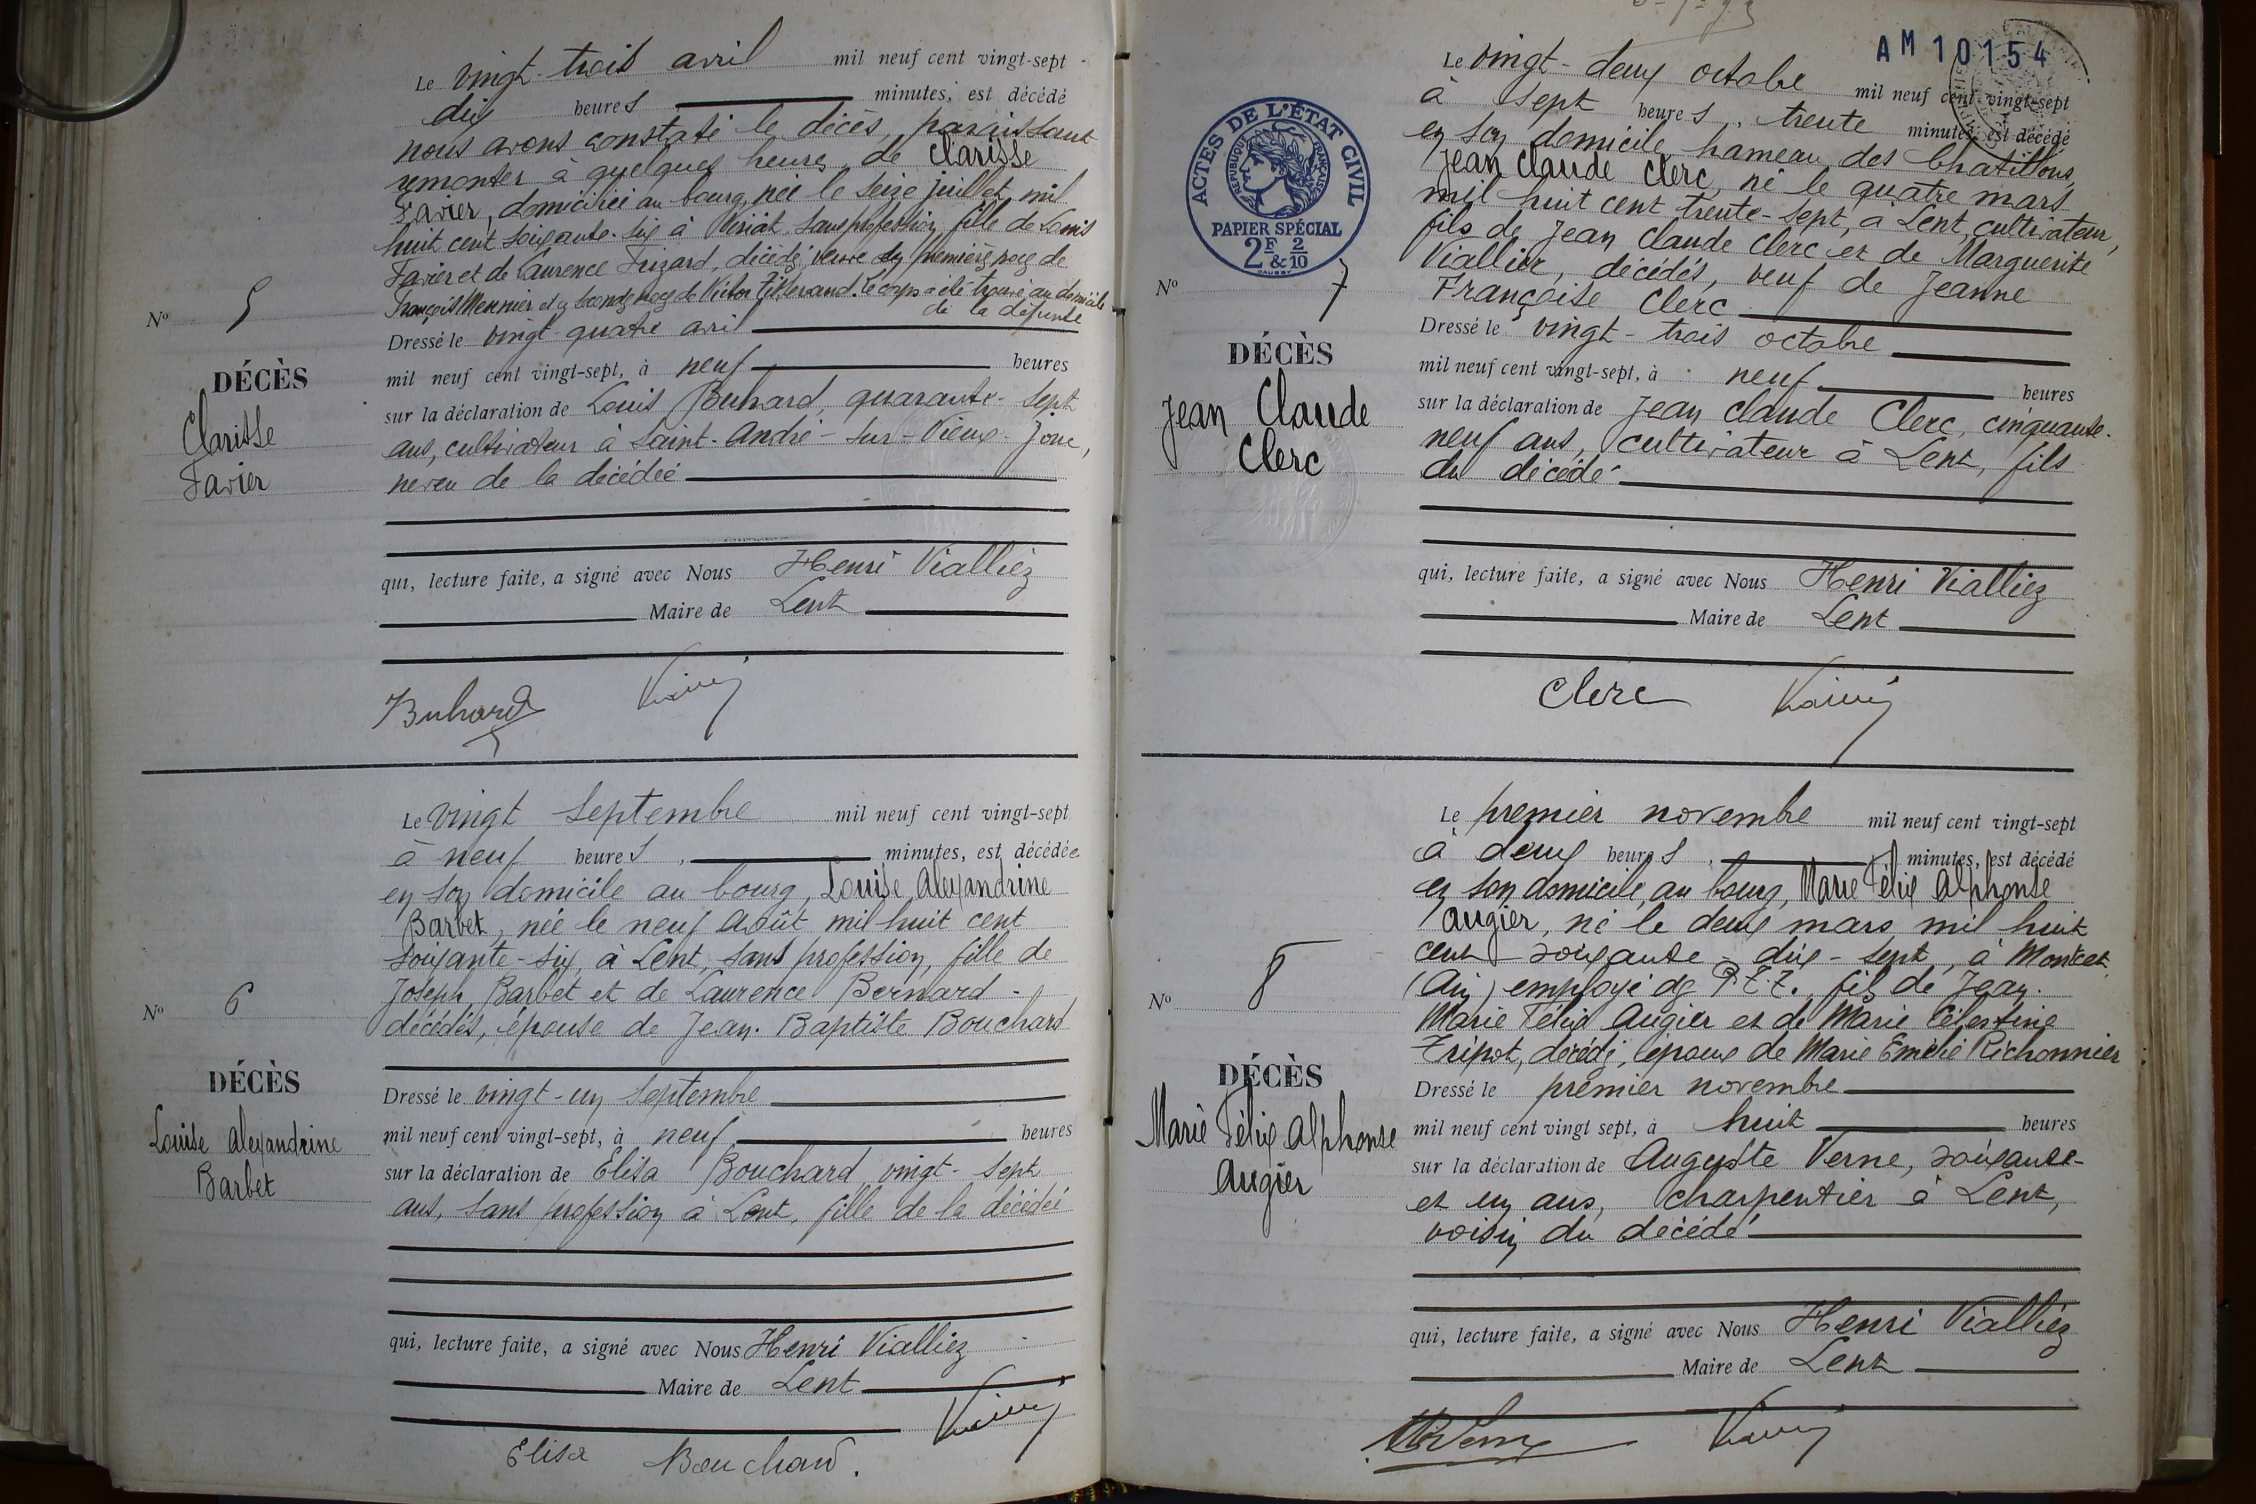 Le vingt-trois avril mil neuf cent vingt-sept
dix heures minutes, est décédé
nous avons constaté le décès, paraissant
remonter à quelques heures, de Clarisse
Favier, domiciliée au bourg, née le seize juillet mil
huit cent soixante-six à Viriat, sans profession, fille de Louis
Favier et de Laurence Frizard, décédés, veuve en premières noces de
François Meunier et en secondes noces de Victor Tisserand. Le corps a été trouvé au domicile
de la défunte
Dressé le vingt-quatre avril
mil neuf cent vingt-sept, à neuf heures
sur la déclaration de Louis Buhard, quarante-sept
ans, cultivateur à Saint-André-sur-Vieux-Jonc,
neveu de la décédée
qui, lecture faite, a signé avec Nous Henri Vialliez
Maire de Lent
Buhard
No 5
DÉCÈS
Clarisse
Favier
Le vingt septembre mil neuf cent vingt-sept
à neuf heures, minutes, est décédée
en son domicile au bourg, Louise Alexandrine
Barbet, née le neuf Août mil huit cent
soixante-six, à Lent, sans profession, fille de
Joseph Barbet et de Laurence Bernard
décédés, épouse de Jean-Baptiste Bouchard
Dressé le vingt-un septembre
mil neuf cent vingt-sept, à neuf heures
sur la déclaration de Elisa Bouchard, vingt-sept
ans, sans profession à Lent, fille de la décédée
qui, lecture faite, a signé avec Nous Henri Vialliez
Maire de Lent
Elisa Bouchard.
No 6
DÉCÈS
Louise Alexandrine
Barbet
AM 10154
Le vingt-deux octobre mil neuf cent vingt-sept
à sept heures, trente minutes, est décédé
en son domicile, hameau des Chatillons,
Jean Claude Clerc, né le quatre mars
mil huit cent trente-sept, à Lent, cultivateur,
fils de Jean Claude Clerc et de Marguerite
Viallier, décédés, veuf de Jeanne
Françoise Clerc
Dressé le vingt-trois octobre
mil neuf cent vingt-sept, à neuf heures
sur la déclaration de Jean Claude Clerc, cinquante-
neuf ans, cultivateur à Lent, fils
du décédé
qui, lecture faite, a signé avec Nous Henri Vialliez
Maire de Lent
Clerc
ACTES DE L'ÉTAT CIVIL
RÉPUBLIQUE FRANÇAISE
PAPIER SPÉCIAL
2F & 2/10
No 7
DÉCÈS
Jean Claude
Clerc
Le premier novembre mil neuf cent vingt-sept
à deux heures, minutes, est décédé
en son domicile, au bourg, Marie Félix Alphonse
Augier, né le deux mars mil huit
cent soixante-dix-sept, à Montcet
(Ain) employé de P.T.T., fils de Jean-
Marie Félix Augier et de Marie Célestine
Tripot, décédés, époux de Marie Emélie Richonnier
Dressé le premier novembre
mil neuf cent vingt sept, à huit heures
sur la déclaration de Auguste Verne, soixante-
et un ans, charpentier à Lent,
voisin du décédé
qui, lecture faite, a signé avec Nous Henri Vialliez
Maire de Lent
No 8
DÉCÈS
Marie Félix Alphonse
Augier